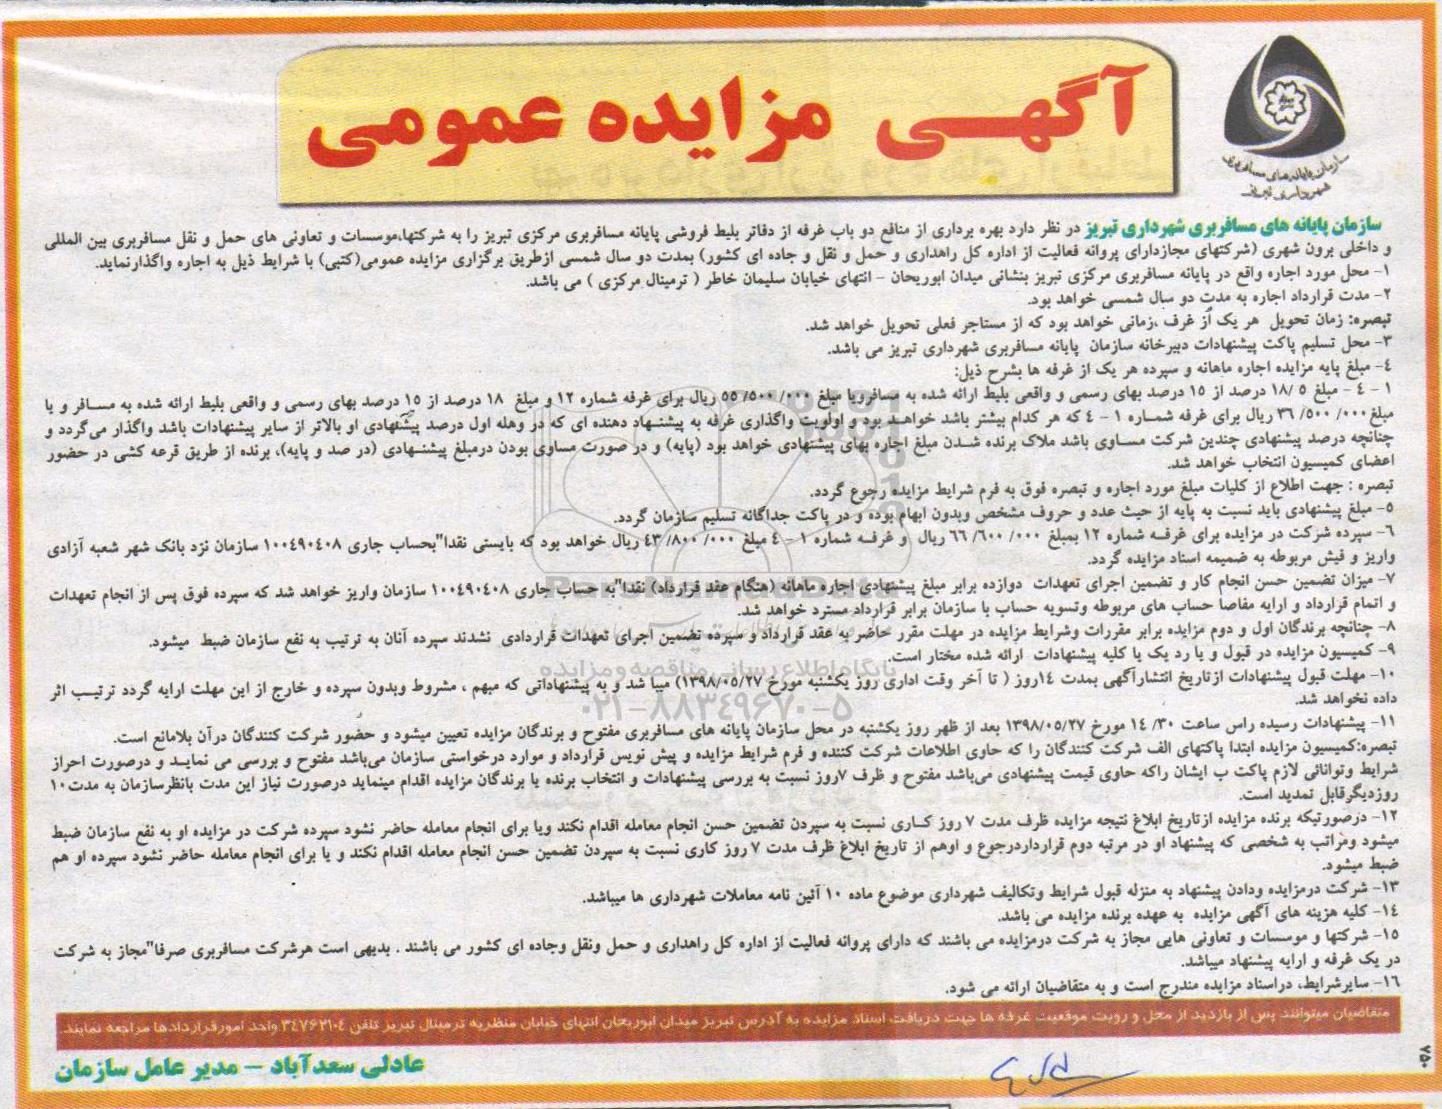 آگهی مزایده عمومی
سازمان پایانه های مسافربری
شهرداری تبریز
سازمان پایانه های مسافربری شهرداری تبریز در نظر دارد بهره برداری از منافع دو باب غرفه از دفاتر بلیط فروشی پایانه مسافربری مرکزی تبریز را به شرکتها،موسسات و تعاونی های حمل و نقل مسافربری بین المللی
و داخلی برون شهری (شرکتهای مجازدارای پروانه فعالیت از اداره کل راهداری و حمل و نقل و جاده ای کشور) بمدت دو سال شمسی ازطریق برگزاری مزایده عمومی(کتبی) با شرایط ذیل به اجاره واگذارنماید.
۱- محل مورد اجاره واقع در پایانه مسافربری مرکزی تبریز بنشانی میدان ابوریحان - انتهای خیابان سلیمان خاطر ( ترمینال مرکزی ) می باشد.
۲- مدت قرارداد اجاره به مدت دو سال شمسی خواهد بود.
تبصره: زمان تحویل هر یک از غرف ،زمانی خواهد بود که از مستاجر فعلی تحویل خواهد شد.
۳- محل تسلیم پاکت پیشنهادات دبیرخانه سازمان پایانه مسافربری شهرداری تبریز می باشد.
۴- مبلغ پایه مزایده اجاره ماهانه و سپرده هر یک از غرفه ها بشرح ذیل:
۱ - ۴ - مبلغ ۱۸/۵ درصد از ۱۵ درصد بهای رسمی و واقعی بلیط ارائه شده به مسافرویا مبلغ ۵۵/۵۰۰/۰۰۰ ریال برای غرفه شماره ۱۲ و مبلغ ۱۸ درصد از ۱۵ درصد بهای رسمی و واقعی بلیط ارائه شده به مسافر و یا
مبلغ ۳۶/۵۰۰/۰۰۰ ریال برای غرفه شماره ۱ - ۴ که هر کدام بیشتر باشد خواهد بود و اولویت واگذاری غرفه به پیشنهاد دهنده ای که در وهله اول درصد پیشنهادی او بالاتر از سایر پیشنهادات باشد واگذار می گردد و
چنانچه درصد پیشنهادی چندین شرکت مساوی باشد ملاک برنده شدن مبلغ اجاره بهای پیشنهادی خواهد بود (پایه) و در صورت مساوی بودن درمبلغ پیشنهادی (در صد و پایه)، برنده از طریق قرعه کشی در حضور
اعضای کمیسیون انتخاب خواهد شد.
تبصره : جهت اطلاع از کلیات مبلغ مورد اجاره و تبصره فوق به فرم شرایط مزایده رجوع گردد.
۵- مبلغ پیشنهادی باید نسبت به پایه از حیث عدد و حروف مشخص وبدون ابهام بوده و در پاکت جداگانه تسلیم سازمان گردد.
۶- سپرده شرکت در مزایده برای غرفه شماره ۱۲ بمبلغ ۶۶/۶۰۰/۰۰۰ ریال و غرفه شماره ۱ - ۴ مبلغ ۴۳/۸۰۰/۰۰۰ ریال خواهد بود که بایستی نقدا"بحساب جاری ۱۰۰۴۹۰۴۰۸ سازمان نزد بانک شهر شعبه آزادی
واریز و فیش مربوطه به ضمیمه اسناد مزایده گردد.
۷- میزان تضمین حسن انجام کار و تضمین اجرای تعهدات دوازده برابر مبلغ پیشنهادی اجاره ماهانه (هنگام عقد قرارداد) نقدا" به حساب جاری ۱۰۰۴۹۰۴۰۸ سازمان واریز خواهد شد که سپرده فوق پس از انجام تعهدات
و اتمام قرارداد و ارایه مفاصا حساب های مربوطه وتسویه حساب با سازمان برابر قرارداد مسترد خواهد شد.
۸- چنانچه برندگان اول و دوم مزایده برابر مقررات وشرایط مزایده در مهلت مقرر حاضر به عقد قرارداد و سپرده تضمین اجرای تعهدات قراردادی نشدند سپرده آنان به ترتیب به نفع سازمان ضبط میشود.
۹- کمیسیون مزایده در قبول و یا رد یک یا کلیه پیشنهادات ارائه شده مختار است.
۱۰- مهلت قبول پیشنهادات ازتاریخ انتشارآگهی بمدت ۱۴روز ( تا آخر وقت اداری روز یکشنبه مورخ ۱۳۹۸/۰۵/۲۷) میبا شد و به پیشنهاداتی که مبهم ، مشروط وبدون سپرده و خارج از این مهلت ارایه گردد ترتیب اثر
داده نخواهد شد.
۱۱- پیشنهادات رسیده راس ساعت ۱۴/۳۰ مورخ ۱۳۹۸/۰۵/۲۷ بعد از ظهر روز یکشنبه در محل سازمان پایانه های مسافربری مفتوح و برندگان مزایده تعیین میشود و حضور شرکت کنندگان درآن بلامانع است.
تبصره:کمیسیون مزایده ابتدا پاکتهای الف شرکت کنندگان را که حاوی اطلاعات شرکت کننده و فرم شرایط مزایده و پیش نویس قرارداد و موارد درخواستی سازمان می‌باشد مفتوح و بررسی می نماید و درصورت احراز
شرایط وتوانائی لازم پاکت ب ایشان راکه حاوی قیمت پیشنهادی می‌باشد مفتوح و ظرف ۷روز نسبت به بررسی پیشنهادات و انتخاب برنده یا برندگان مزایده اقدام مینماید درصورت نیاز این مدت بانظرسازمان به مدت۱۰
روزدیگرقابل تمدید است.
۱۲- درصورتیکه برنده مزایده ازتاریخ ابلاغ نتیجه مزایده ظرف مدت ۷ روز کاری نسبت به سپردن تضمین حسن انجام معامله اقدام نکند ویا برای انجام معامله حاضر نشود سپرده شرکت در مزایده او به نفع سازمان ضبط
میشود ومراتب به شخصی که پیشنهاد او در مرتبه دوم قرارداردرجوع و اوهم از تاریخ ابلاغ ظرف مدت ۷ روز کاری نسبت به سپردن تضمین حسن انجام معامله اقدام نکند و یا برای انجام معامله حاضر نشود سپرده او هم
ضبط میشود.
۱۳- شرکت درمزایده ودادن پیشنهاد به منزله قبول شرایط وتکالیف شهرداری موضوع ماده ۱۰ آئین نامه معاملات شهرداری ها میباشد.
۱۴- کلیه هزینه های آگهی مزایده به عهده برنده مزایده می باشد.
۱۵- شرکتها و موسسات و تعاونی هایی مجاز به شرکت درمزایده می باشند که دارای پروانه فعالیت از اداره کل راهداری و حمل ونقل وجاده ای کشور می باشند . بدیهی است هرشرکت مسافربری صرفا"مجاز به شرکت
در یک غرفه و ارایه پیشنهاد میباشد.
۱۶- سایرشرایط، دراسناد مزایده مندرج است و به متقاضیان ارائه می شود.
متقاضیان میتوانند پس از بازدید از محل و رویت موقعیت غرفه ها جهت دریافت اسناد مزایده به آدرس تبریز میدان ابوریحان انتهای خیابان منظریه ترمینال تبریز تلفن ۳۴۷۶۲۱۰۴ واحد امورقراردادها مراجعه نمایند.
عادلی سعدآباد - مدیر عامل سازمان
۷۵۰
ParsNamadData
پایگاه اطلاع رسانی مناقصه و مزایده
۰۲۱-۸۸۳۴۹۶۷۰-۵